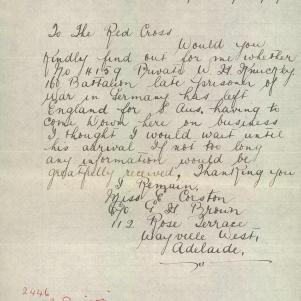 To The Red Cross
Would you
Kindly find out for me whether
No 4159 Private W. H. Knuckey
16 Battalion late prisoner of
War in Germany has left
England for S. Aus. having to
come down here on business
I thought I would wait until
his arrival If not too long
any information would be
greatfully received, Thanking you
I Remain,
Miss E Corston
C/o G H Brown
112 Rose Terrace
Wayville West,
Adelaide,
2446